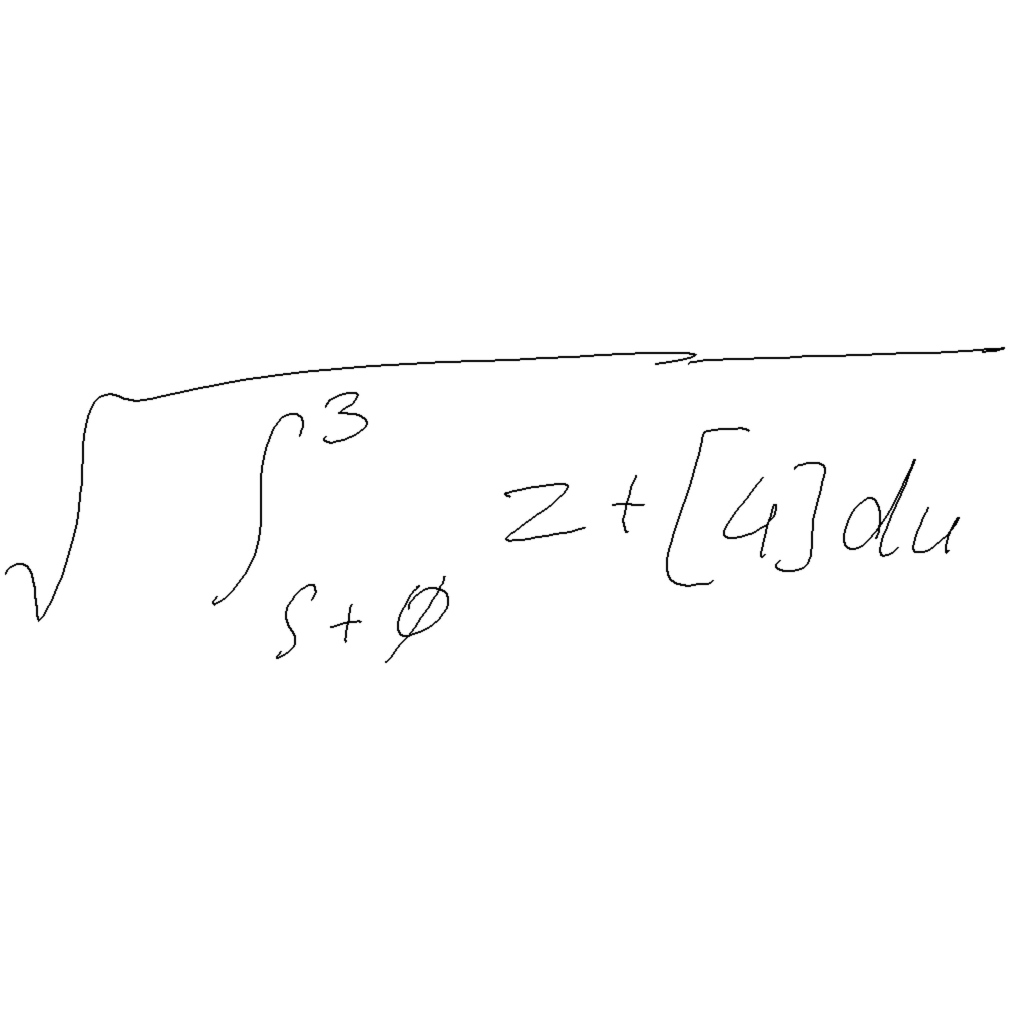 \sqrt{\int_{s+\phi}^{3} z+[4]du}